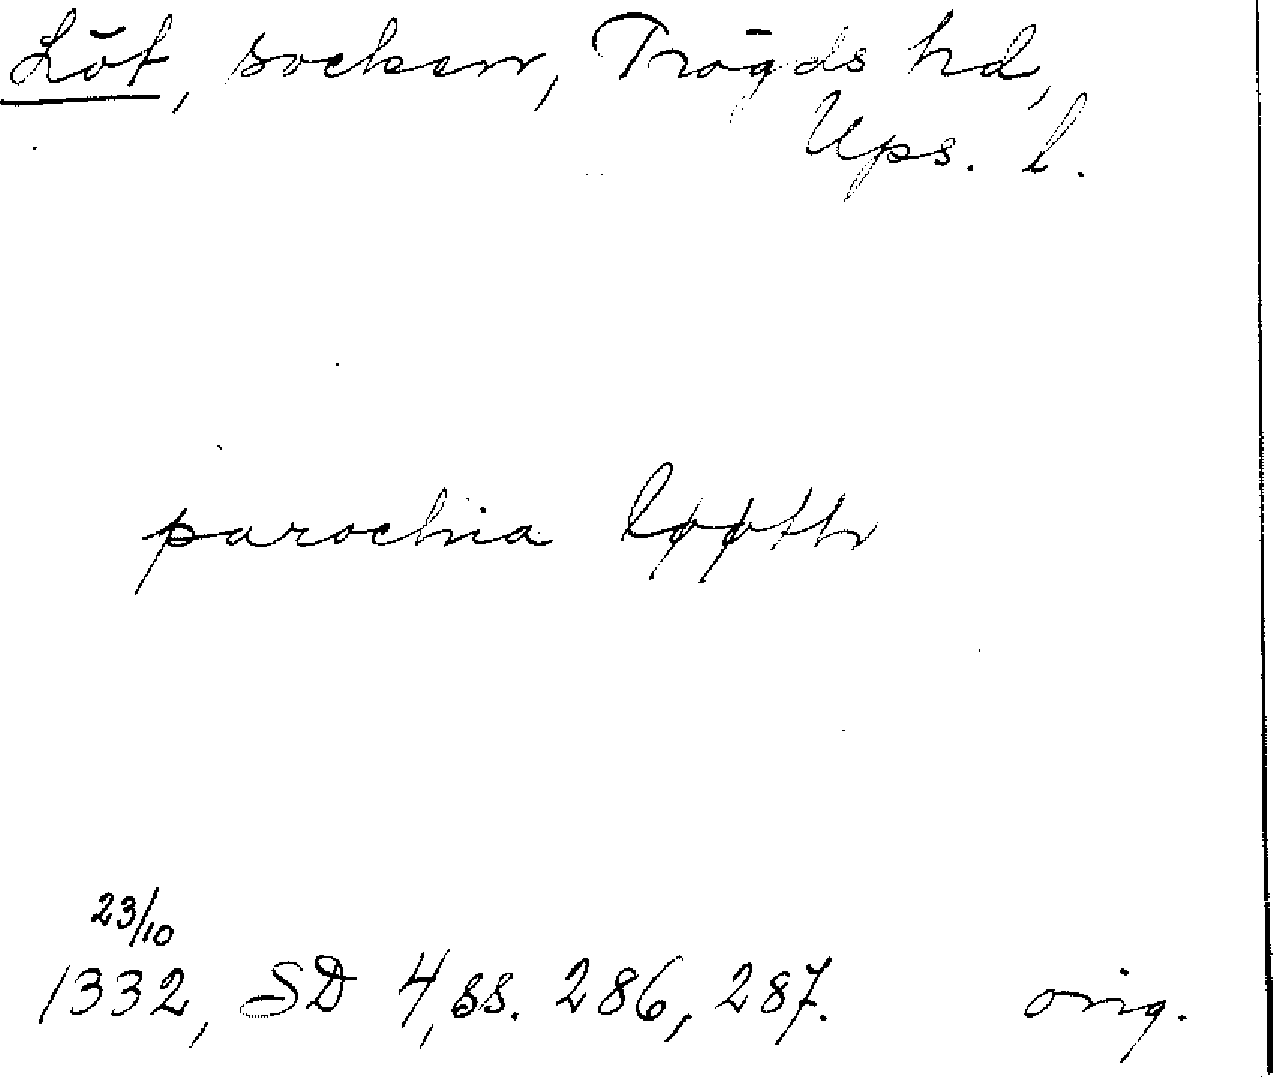 Löt, socken, Trögds hd,
Ups. l.
parochia løøth
23/10
1332, SD 4, ss. 286, 287. orig.